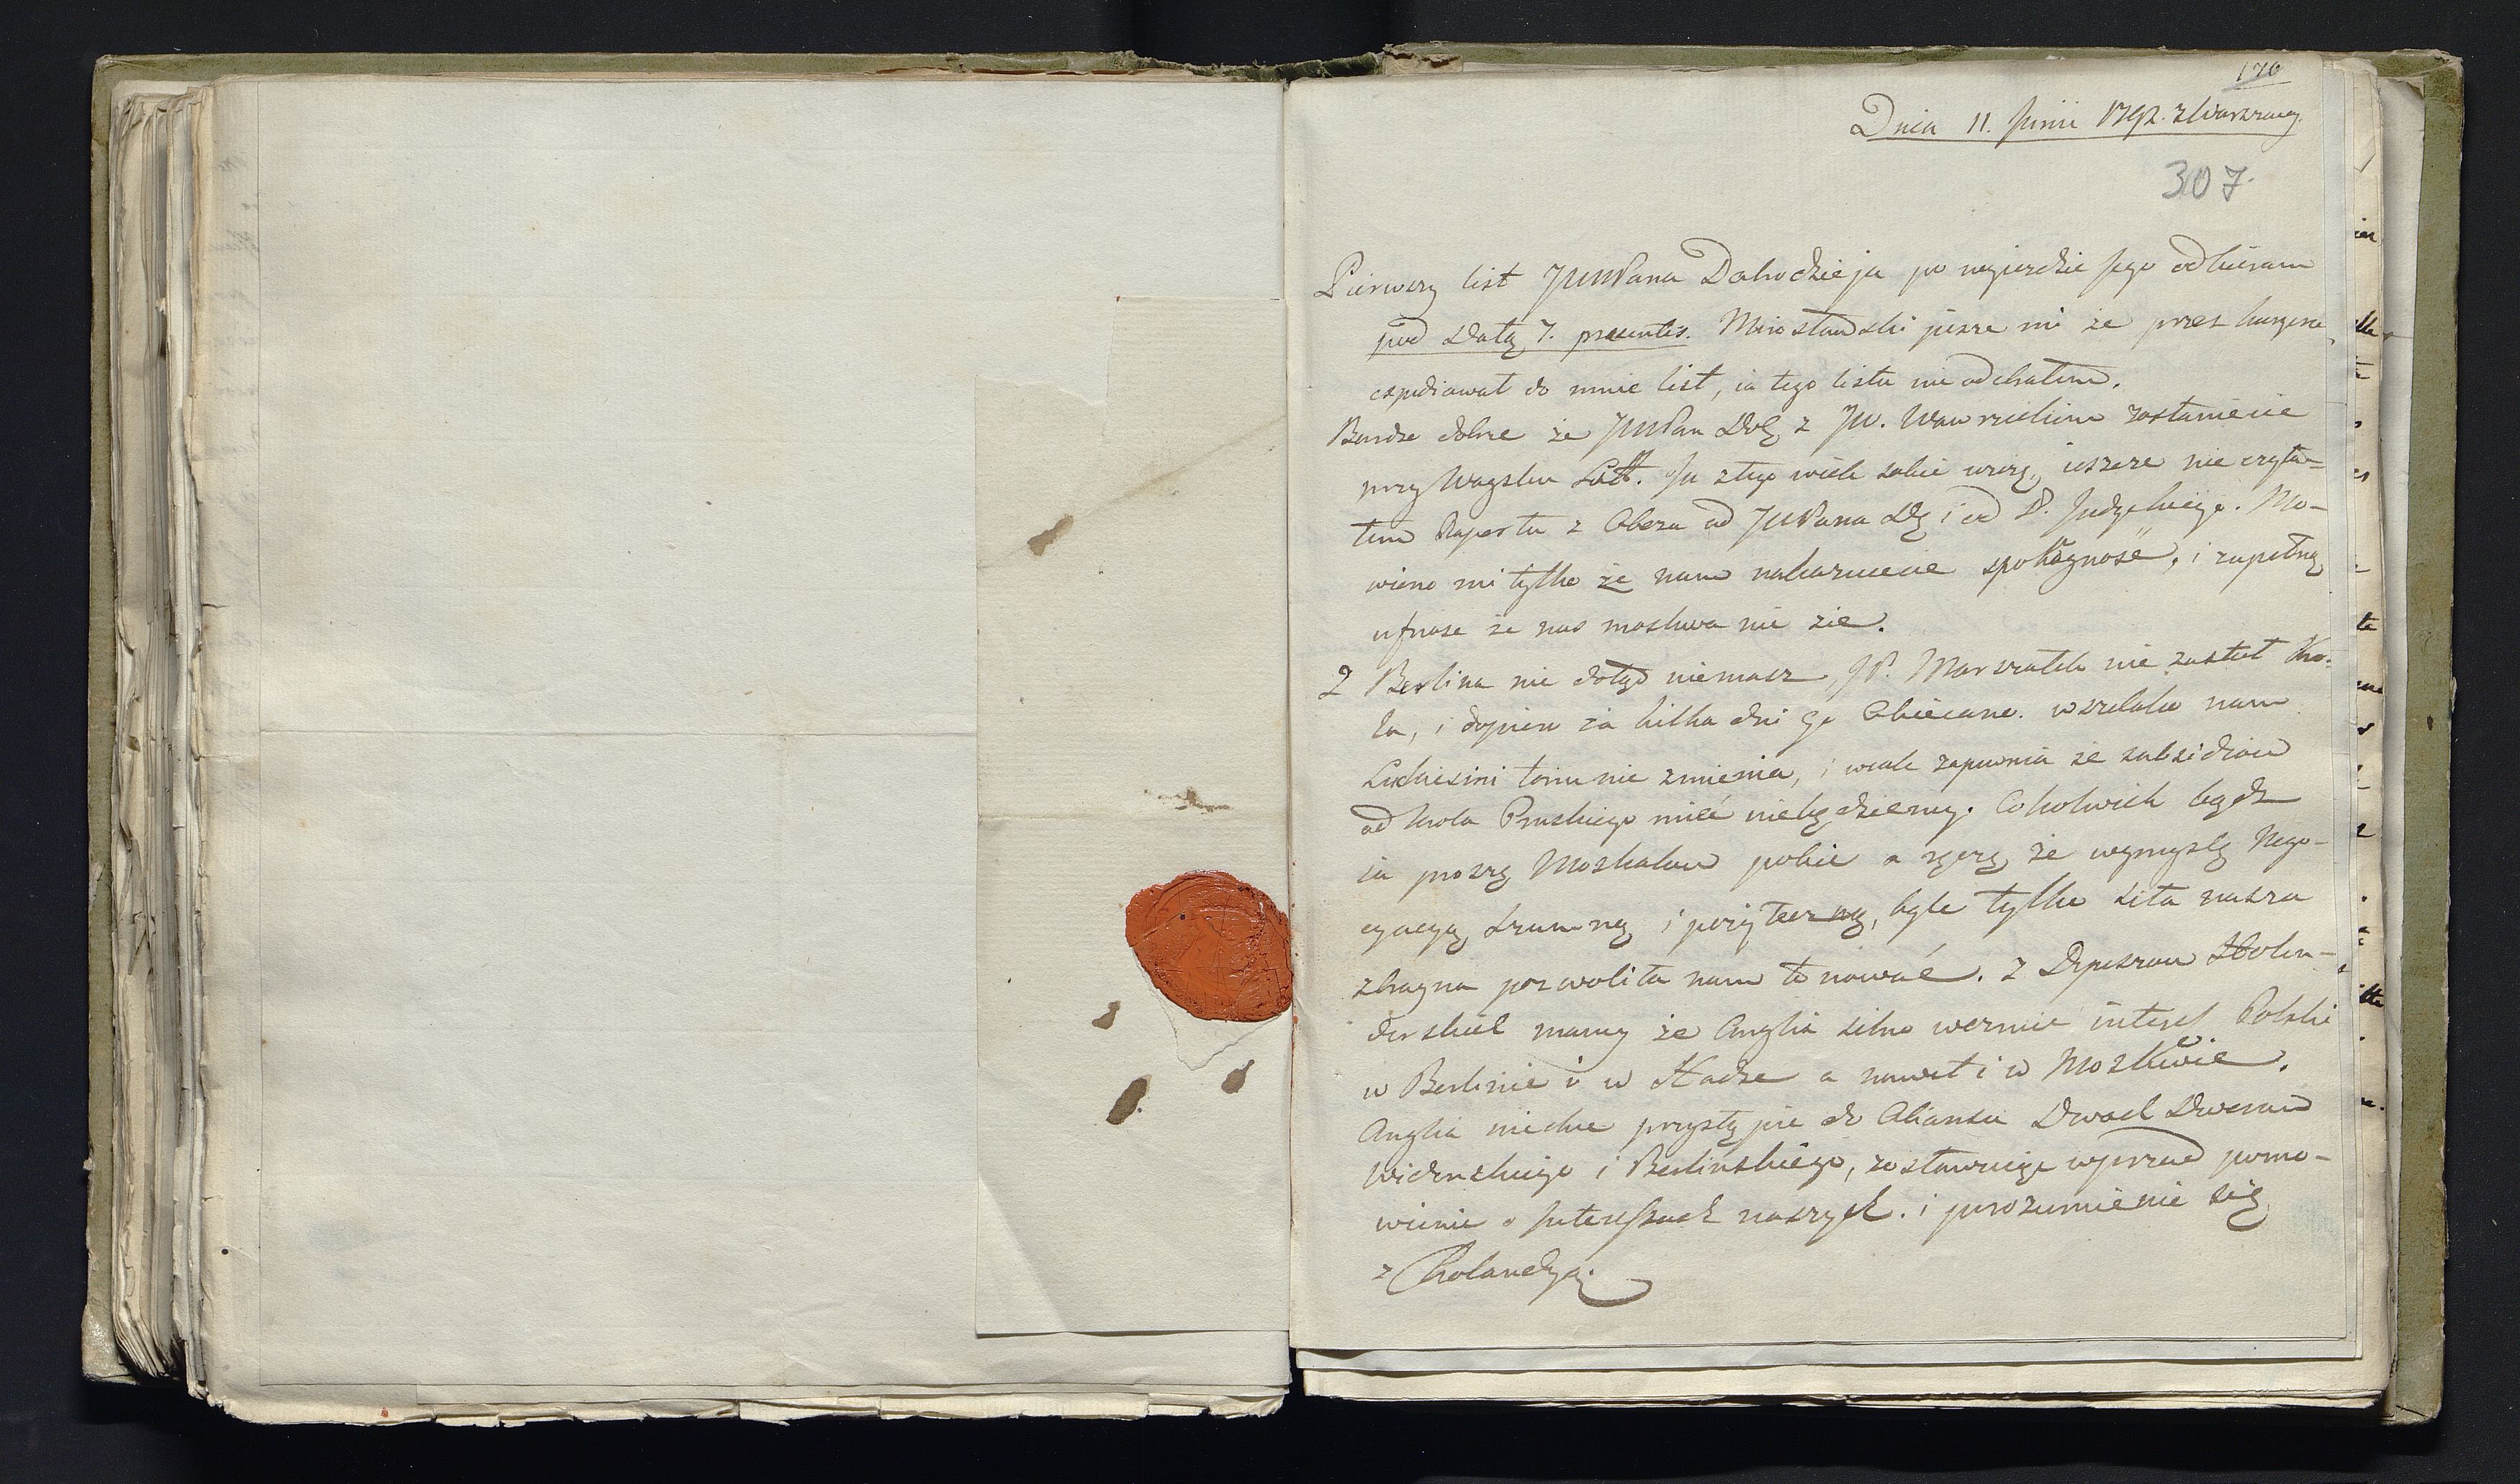 170
Dnia 11. Junii 1792. z Warszawy.
307.
Pierwszy list JWWPana Dobrodzieja po wyjezdzie Jego odbieram
pod Datą 7. praesentis. Mirosławski pisze mi że przez
expediował do mnie list, ia tego listu nie odebrałem.
Bardzo dobrze że JWWPan Dobr z JW. Wawrzeckim zostaniecie
przy Woysku Litt. Ja z tego wiele sobie wrożę, ieszcze nie czyta=
łem Raportu z Obozu od JWPana Dbr i od P. Judyckiego. Mo-
wiono mi tylko że nam nakazuiecie spokoyność, i zupełną
ufność że nas moskwa nie zie.
Z Berlina nic dotąd niemasz, JP. Marszałek nie zastał Kro=
la, i dopiero za kilka dni go Obiecano. wszelako nam
Lukiesini tonu nie zmienia, i wcale zapewnia że subsidiow
od Krola Pruskiego mieć niebędziemy. Cokolwiek bądz
ia proszę Moskalow pobić a ręczę że wymyślę Nego-
cyacyą szumną i pożyteczną, byle tylko siła nasza
zbroyna pozwoliła nam to nować. Z Depeszow Hollen-
derskich mamy że Anglia silno wezmie interes Polski
w Berlinie i w Hadze a nawet i w Moskwie.
Anglia niechce przystąpić do Aliansu Dwoch Dworow
Wiedenskiego i Berlinskiego, zostawuiąc wprzod pomo-
wienie o Interessach naszych. i porozumienie się
z Holandyą.